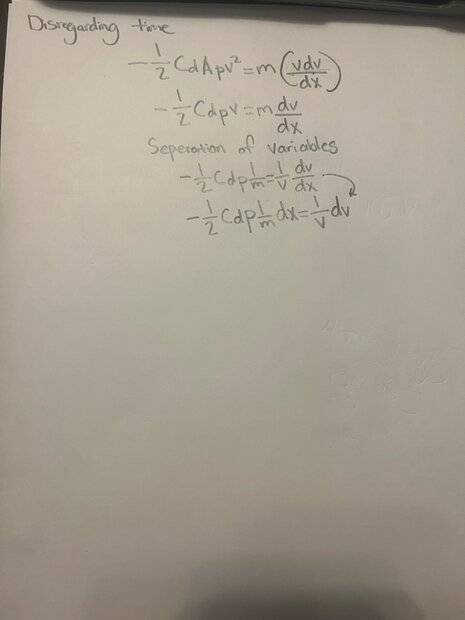 Disregarding time
-1/2 CdApv² = m(vdv/dx)
-1/2 Cdpv = m dv/dx
Seperation of variables
-1/2 Cdp 1/m = 1/v dv/dx
-1/2 Cdp 1/m dx = 1/v dv